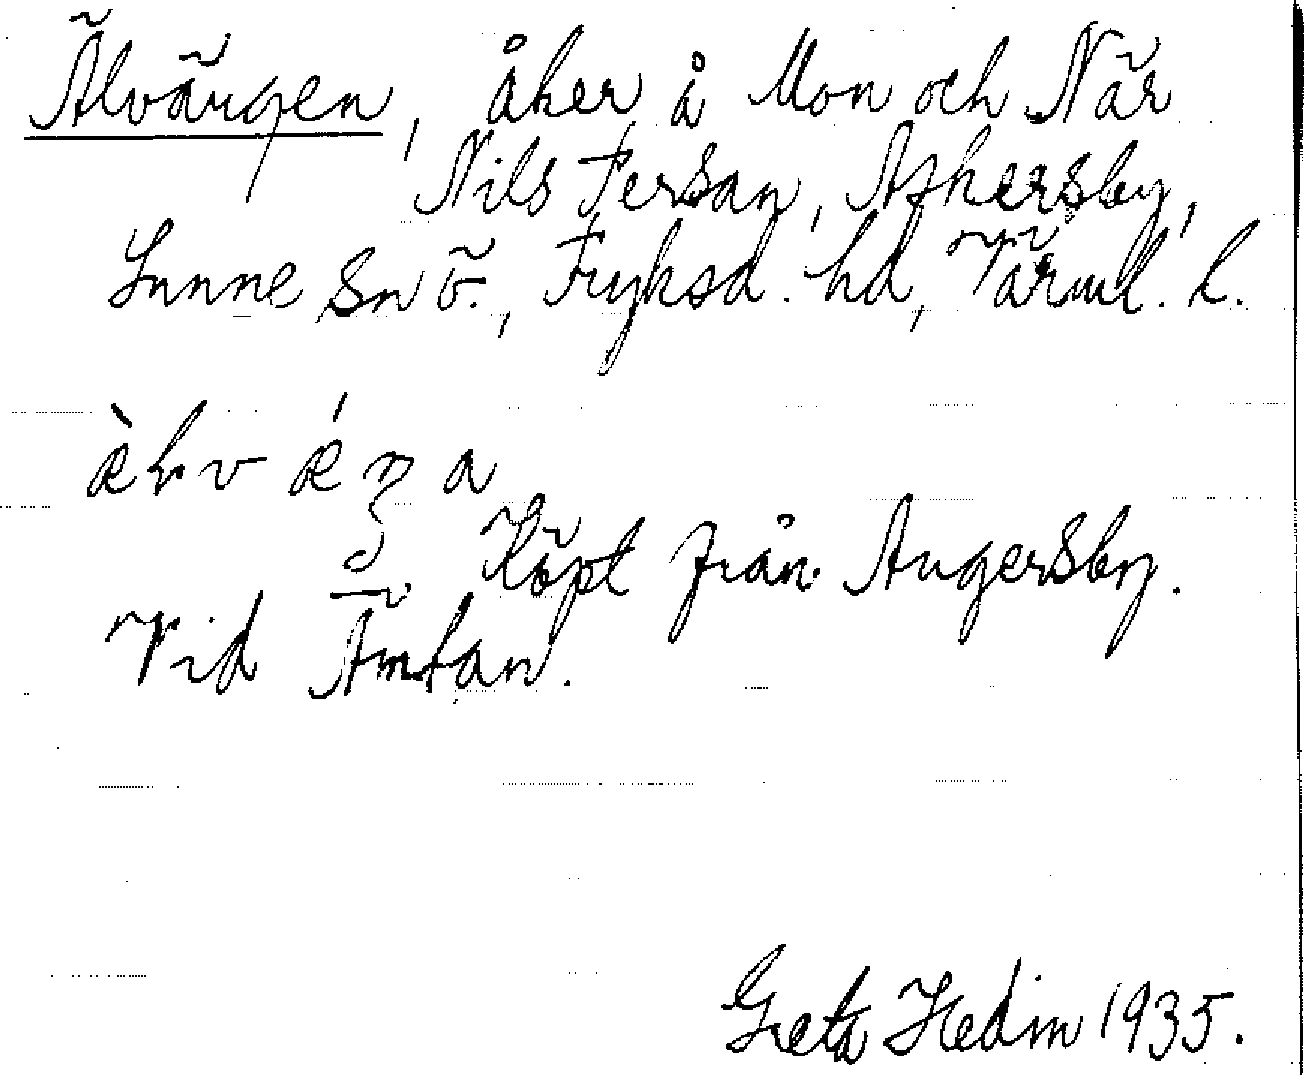 Älvängen, åker å Mon och När
Nils Persan, Askersby,
Sunne sn ö., Fryksd. hd, Värml. l.
Köpt från Angersby.
Vid Ämtan.
Greta Hedin 1935.